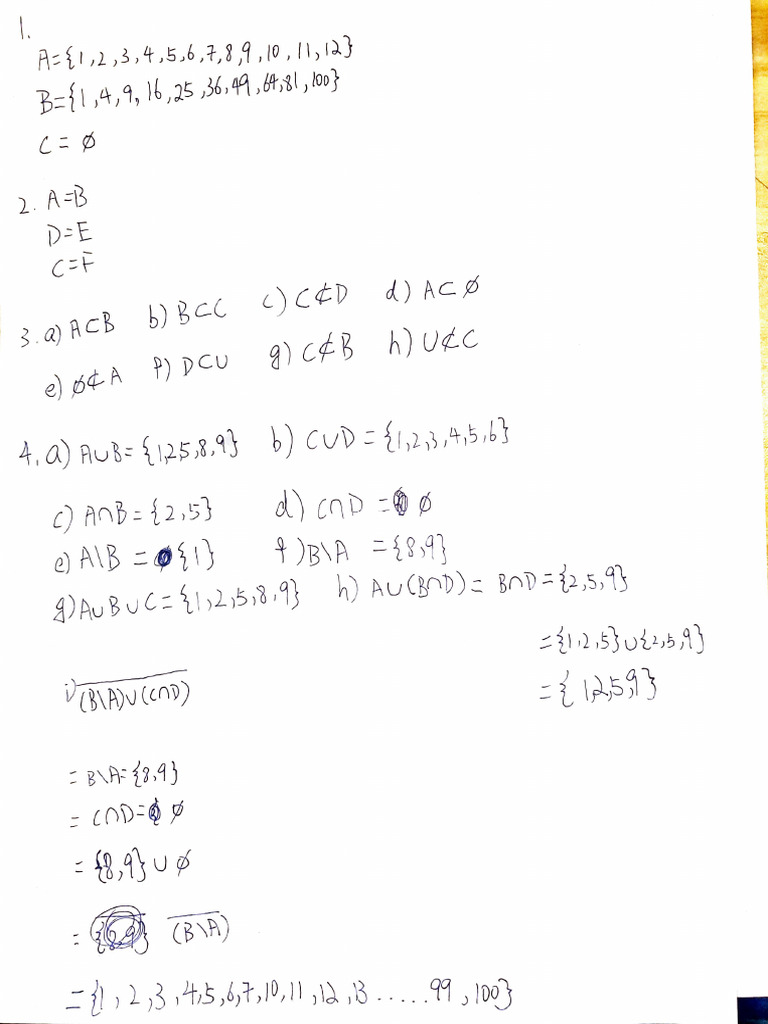 1.
A={1,2,3,4,5,6,7,8,9,10,11,12}
B={1,4,9,16,25,36,49,64,81,100}
C=∅
2. A=B
D=E
C=F
3. a) A⊂B b) B⊂C c) C⊄D d) A⊂∅
e) ∅⊄A f) D⊂U g) C⊄B h) U⊄C
4. a) A∪B={1,2,5,8,9} b) C∪D={1,2,3,4,5,6}
c) A∩B={2,5} d) C∩D=∅
e) A\B={1} f) B\A={8,9}
g) A∪B∪C={1,2,5,8,9} h) A∪(B∩D)= B∩D={2,5,9}
={1,2,5}∪{2,5,9}
={1,2,5,9}
i) \overline{(B\A)∪(C∩D)}
= B\A={8,9}
= C∩D=∅
= {8,9}∪∅
= \overline{(B\A)}
={1,2,3,4,5,6,7,10,11,12,13.....99,100}